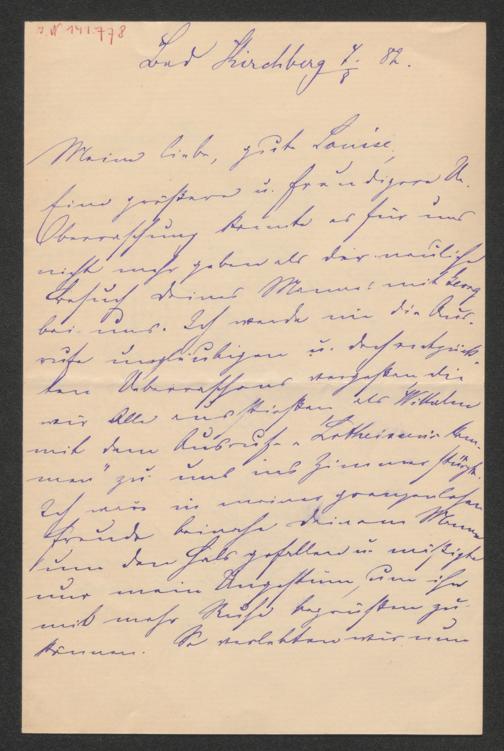 J N 141.778
Bad Kirchberg 7/8 82.
Meine liebe, gute Louise,
Eine größere u. freudigere
Überraschung konnte es für uns
nicht mehr geben als der neuliche
Besuch deines Mannes mit Georg
bei uns. Ich werde nie die Aus-
rufe ungläubigen u. doch entzück-
ten Überraschens vergessen die
wir Alle ausstießen als Wilhelm
mit dem Ausrufe „Lotheissen's kom-
men" zu uns ins Zimmer stürzte.
Ich wäre in meiner grenzenlosen
Freude beinahe deinem Manne
um den Hals gefallen u. mäßigte
nur mein Ungestüm, um ihn
mit mehr Ruhe begrüßen zu
können. So verlebten wir nun